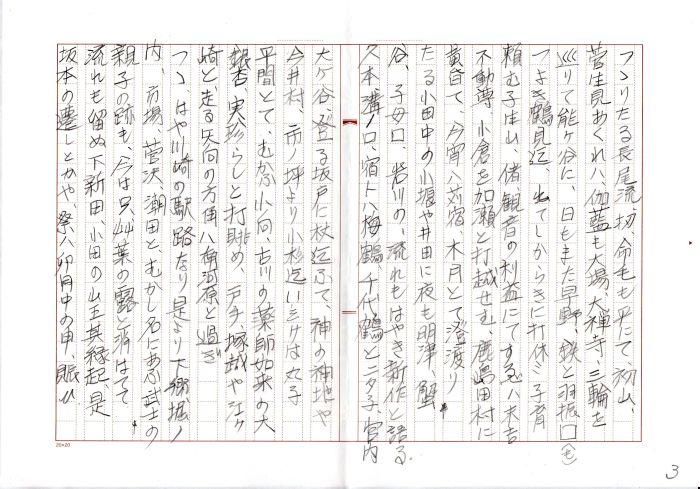 つゝりたる長尾流れ坊、命毛も平にて、初山、
菅生見あくれハ、伽藍も大場、大禅寺、三輪を
巡りて能ヶ谷に、日もまた早野、鉄と羽振□(を)
つよき鶴見迄、出てしからきに打休ミ子育
頼む子生山、偖、観音の利益にてする、ハ末吉
不動尊、小倉を加瀬と打越せむ、鹿島田村に
黄昏て、今宵ハ苅宿、木月とて澄渡り
たる小田中の小堰や井田に夜も明津、蟹ヶ
谷、子母口、岩川の、流れもはやき新作と語る
久本溝ノ口、宿トハ梅鶴、千代鶴と二タ子、宮内
大ヶ谷、登る坂戸に杖迄ふて、神の神地や
今井村、市ノ坪より小杉迄い三けは丸子
平間とて、むかふ小向、古川の薬師如来の大
銀杏、実珍らしと打眺め、戸手、塚越や江ヶ
崎と、走る矢向の方角ハ南河原と過ぎ
つゝ、はや川崎の駅路なり 是より下郷、堀ノ
内、市場、菅沢、潮田と、むかし名にあふ武士の
親子の跡も、今は只、艸葉の露と消はてて、
流れも留ぬ下新田、小田の山王其縁起、是
坂本の遷しとかや、祭ハ卯月中の申、賑ひ
20×20
3